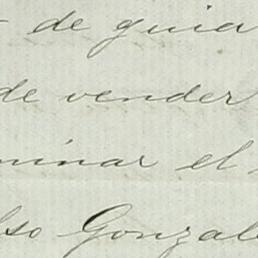 de guia
de vender
minar el
lso Gonzal